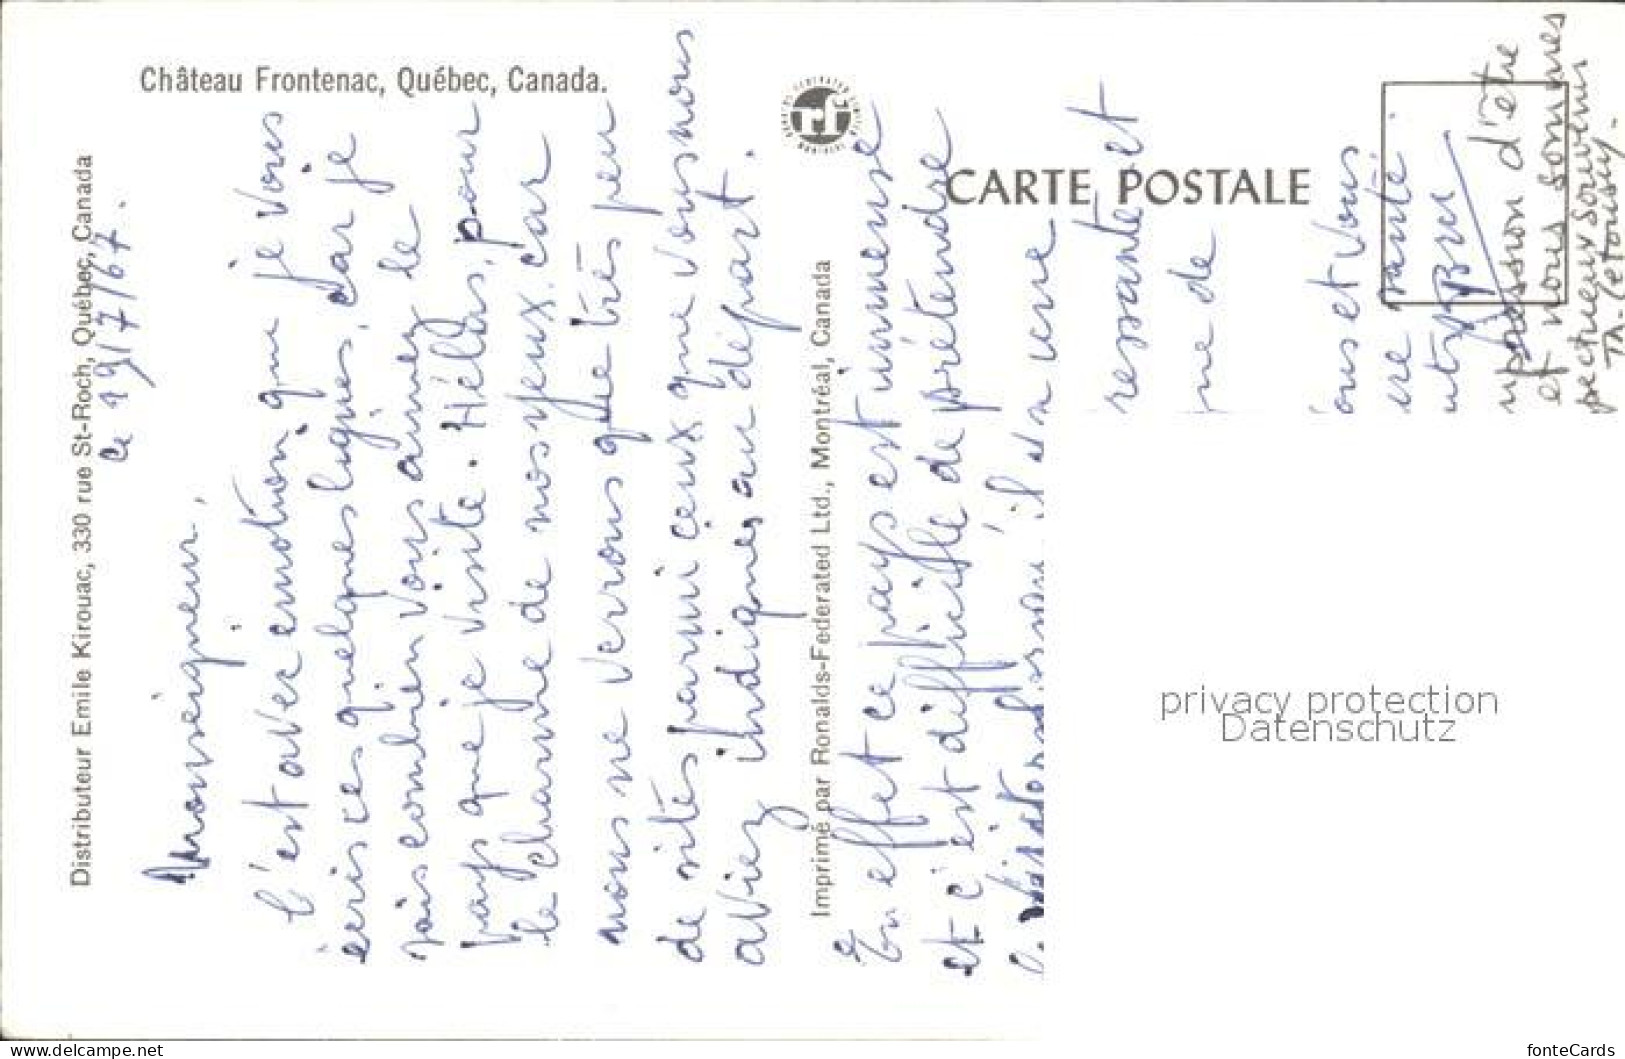 Château Frontenac, Québec, Canada.
CARTE POSTALE
Distributeur Emile Kirouac, 330 rue St-Roch, Québec, Canada
Imprimé par Ronalds-Federated Ltd., Montréal, Canada
Ce 19/7/67.
Monseigneur,
C'est avec émotion que je vous
écris ces quelques lignes, car je
sais combien vous aimez le
pays que je visite. Hélas, pour
le charme de nos yeux, car
nous ne verrons que très peu
de sites parmi ceux que vous nous
aviez indiqués au départ.
En effet ce pays est immense
et c'est difficile de prétendre
le visiter il a une
ressante et
que de
ous et vous
re santé.
pression d'être
et nous sommes
pectueux souvenir
privacy protection
Datenschutz
www.delcampe.net
fonteCards